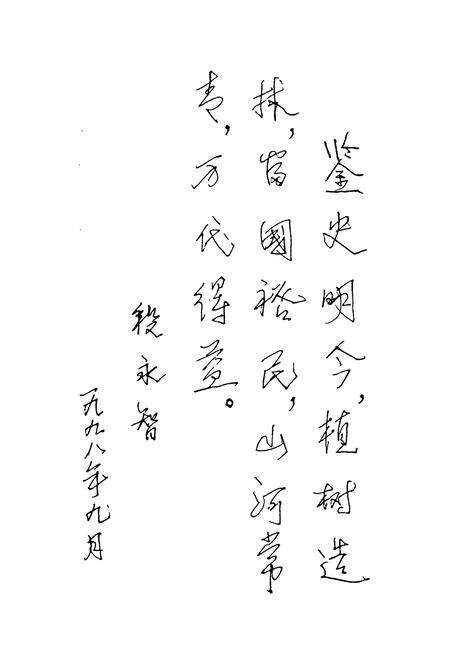 鉴史明今，植树造
林，富國裕民，山河常
青，万代得益。
段永智
一九九八年九月